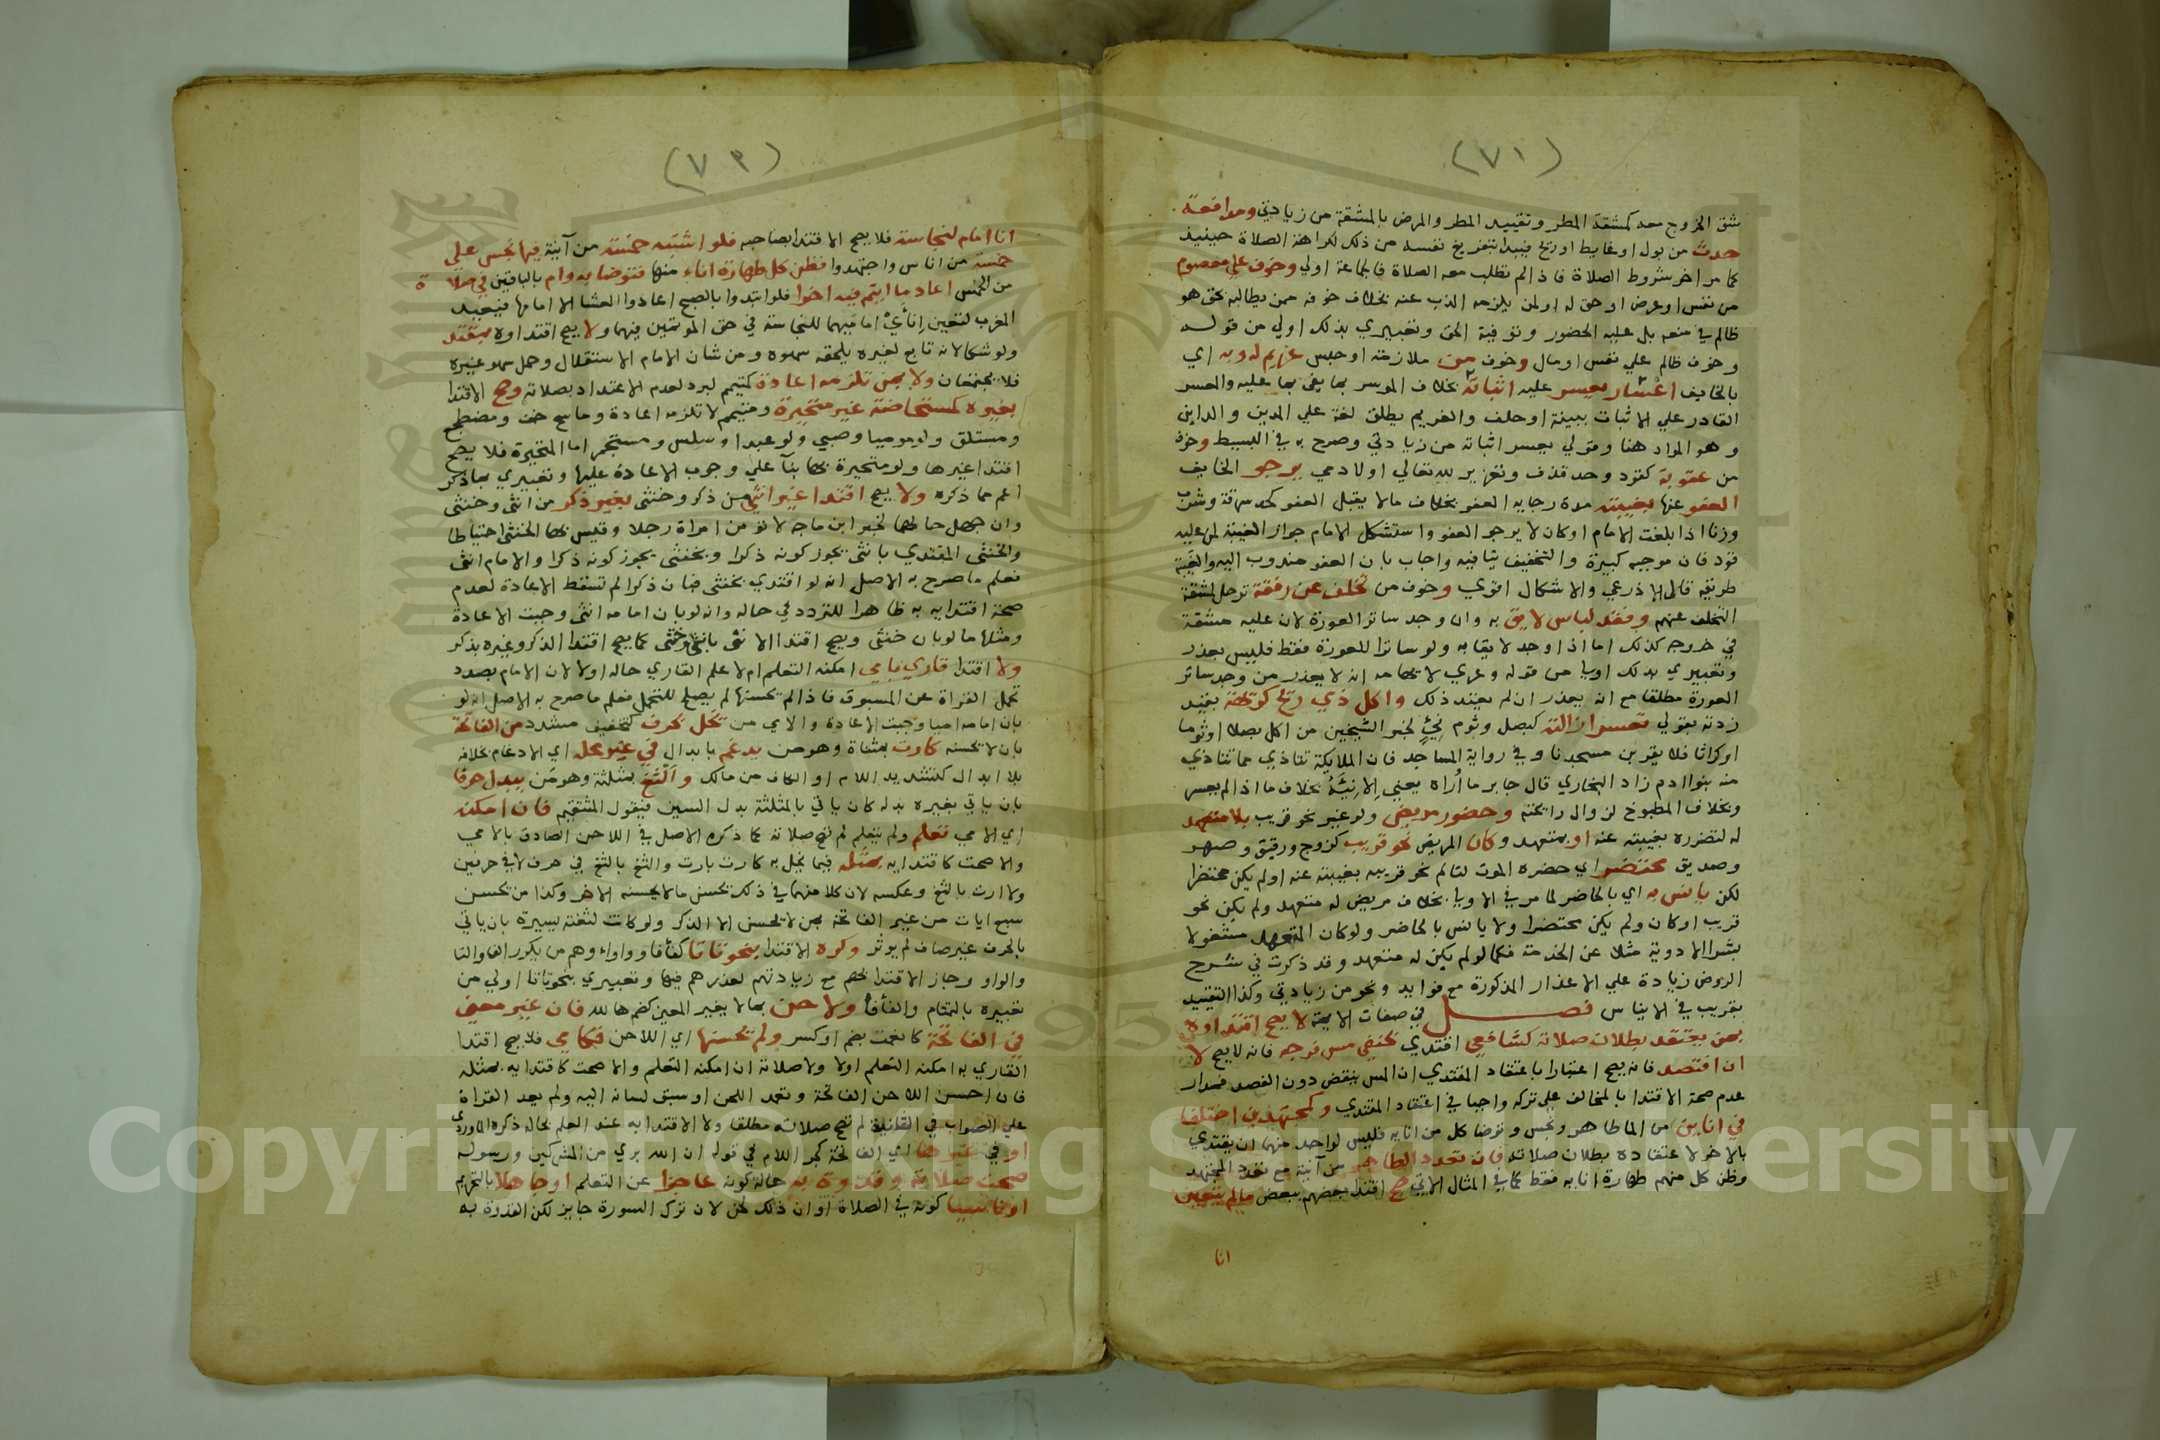 (٧١)
شق الخروج معه كمشقة المطر وتقييد المطر والمرض بالمشقة من زيادتي ومدافعة
حدث من بول او غايط او ريح فيبدا بتفريغ نفسه من ذلك لكراهة الصلاة حينيذ
كما مر اخر شروط الصلاة فاذا لم تطلب معه الصلاة فالجماعة اولي وخوف علي معصوم
من نفس او عرض او حق له او لمن يلزمه الذب عنه بخلاف خوفه ممن يطالبه بحق هو
ظالم في منعه بل عليه الحضور وتوفية الحق وتعبيري بذلك اولي من قوله
وخوف ظالم علي نفس او مال وخوف من ملازمة او حبس غريم له وبه اي
بالخايف اعسار يعسر عليه اثباته بخلاف الموسر بما يفي بما عليه والمعسر
القادر علي الاثبات ببينة او حلف والغريم يطلق لغة علي المدين والداين
وهو المراد هنا وقولي يعسر اثباته من زيادتي وصرح به في البسيط وخوف
من عقوبة كقود وحد قذف وتعزير لله تعالي او لادمي يرجو الخايف
العفو عنها بغيبته مدة رجايه العفو بخلاف ما لا يقبل العفو كحد سرقة وشرب
وزنا اذا بلغت الامام او كان لا يرجو العفو واستشكل الامام جواز الغيبة لمن عليه
قود فان موجبه كبيرة والتخفيف ينافيه واجاب بان العفو مندوب اليه والغيبة
طريقه قال الاذرعي والاشكال اقوي وخوف من تخلف عن رفقة ترحل لمشقة
التخلف عنهم وفقد لباس لايق به وان وجد ساتر العورة لان عليه مشقة
في خروجه كذلك اما اذا وجد لايقا به ولو ساترا للعورة فقط فليس بعذر
وتعبيري بذلك اولي من قوله وعري لايهامه انه لا يعذر من وجد ساتر
العورة مطلقا مع انه يعذر ان لم يعتد ذلك واكل ذي ريح كريهة بقيد
زدته بقولي تعسر ازالته كبصل وثوم نيئ لخبر الشيخين من اكل بصلا او ثوما
او كراثا فلا يقربن مسجدنا وفي رواية المساجد فان الملايكة تتاذي مما تتاذي
منه بنوا ادم زاد البخاري قال جابر ما اراه يعني الا نيئه بخلاف ما اذا لم يعسر
وبخلاف المطبوخ لزوال رائحته وحضور مريض ولو غير نحو قريب بلا متعهد
له لتضرره بغيبته عنه او بمتعهد وكان المريض نحو قريب كزوج ورقيق وصهر
وصديق محتضرا اي حضره الموت لتالم نحو قريبه بغيبته عنه او لم يكن محتضرا
لكن يانس به اي بالحاضر لما مر في الاولي بخلاف مريض له متعهد ولم يكن نحو
قريب او كان ولم يكن محتضرا ولا يانس بالحاضر ولو كان المتعهد مشغولا
بشرا الادوية مثلا عن الخدمة فكما لو لم يكن له متعهد وقد ذكرت في شرح
الروض زيادة علي الاعذار المذكورة مع فوايد ونحو من زيادتي وكذا التقييد
بقريب في الايناس فصل في صفات الايمة لا يصح اقتداوه
بمن يعتقد بطلان صلاته كشافعي اقتدي بحنفي مس فرجه فانه لا يصح لا
ان افتصد فانه يصح اعتبارا باعتقاد المقتدي ان المس ينقض دون الفصد فمدار
عدم صحة الاقتدا بالمخالف علي تركه واجبا في اعتقاد المقتدي وكمجتهدين اختلفا
في اناين من الماطاهر ونجس وتوضا كل من انايه فليس لواحد منهما ان يقتدي
بالاخر لاعتقاده بطلان صلاته فان تعدد الطاهر من آنية مع تعدد المجتهد
وظن كل منهم طهارة انايه فقط كما في المثال الاتي صح اقتدا بعضهم ببعض ما لم يتعين
انا
(٧٢)
انا امام لنجاسة فلا يصح الاقتدا بصاحبه فلو اشتبه خمسة من آنية فيها نجس علي
خمسة من اناس واجتهدوا فظن كل طهارة اناء منها فتوضا به وام بالباقين في صلاة
من الخمس اعاد ما ايتم فيه اخرا فلو ابتدوا بالصبح اعادوا العشا الا امامها فيعيد
المغرب لتعين انآي اماميهما للنجاسة في حق الموتمين فيهما ولا يصح اقتداوه بمقتد
ولو شكا لانه تابع لغيره يلحقه سهوه ومن شان الامام الاستقلال وحمل سهو غيره
فلا يجتمعان ولا بمن تلزمه اعادة كمتيمم لبرد لعدم الاعتداد بصلاته وصح الاقتدا
بغيره كمستحاضة غير متحيرة ومتيمم لا تلزمه اعادة وماسح خف ومضطجع
ومستلق ولو موميا وصبي ولو عبدا وسلس ومستجمر اما المتحيرة فلا يصح
اقتدا غيرها ولو متحيرة بها بنآ علي وجوب الاعادة عليها وتعبيري بما ذكر
اعم مما ذكره ولا يصح اقتدا غير انثي من ذكر وخنثي بغير ذكر من انثي وخنثي
وان جهل حالهما لخبر ابن ماجه لا تؤمن امراة رجلا وقيس بها الخنثي احتياطا
والخنثي المقتدي بانثي يجوز كونه ذكرا وبخنثي يجوز كونه ذكرا والامام انثي
فعلم ما صرح به الاصل انه لو اقتدي بخنثي فبان ذكرا لم تسقط الاعادة لعدم
صحة اقتدايه به ظاهرا للتردد في حاله وانه لو بان امامه انثي وجبت الاعادة
ومثلها ما لو بان خنثي ويصح اقتدا الانثي بانثي وخنثي كما يصح اقتدا الذكر وغيره بذكر
ولا اقتدا قاري بامي امكنه التعلم ام لا علم القاري حاله او لا لان الامام بصدد
تحمل القراة عن المسبوق فاذا لم يحسنها لم يصلح للتحمل فعلم ما صرح به الاصل انه لو
بان امامه اميا وجبت الاعادة والامي من يخل بحرف كتخفيف مشدد من الفاتحة
بان لا يحسنه كارت بمثناة وهو من يدغم بابدال في غير محله اي الادغام بخلافه
بلا ابدال كتشديد اللام او الكاف من مالك والثغ بمثلثة وهو من يبدل حرفا
بان ياتي بغيره بدله كان ياتي بالمثلثة بدل السين فيقول المثتقيم فان امكنه
اي الامي تعلم ولم يتعلم لم تصح صلاته كما ذكره الاصل في اللاحن الصادق بالامي
والا صحت كاقتدايه بمثله فيما يخل به كارت بارت والثغ بالثغ في حرف لا في حرفين
ولا ارت بالثغ وعكسه لان كلا منهما في ذلك يحسن ما لا يحسنه الاخر وكذا من يحسن
سبع ايات من غير الفاتحة بمن لا يحسن الا الذكر ولو كانت لثغته يسيرة بان ياتي
بالحرف غير صاف لم يوثر وكره الاقتدا بنحو تاتا كفافا وواواء وهم من يكرر الفا والتا
والواو وجاز الاقتدا بهم مع زيادتهم لعذرهم فيها وتعبيري بنحو تاتا اولي من
تعبيره بالتمتام والفافا ولاحن بما لا يغير المعني كضم هالله فان غير معني
في الفاتحة كانعمت بضم او كسر ولم يحسنها اي اللاحن فكامي فلا يصح اقتدا
القاري به امكنه التعلم اولا ولا صلاته ان امكنه التعلم والا صحت كاقتدايه بمثله
فان احسن اللاحن الفاتحة وتعمد اللحن او سبق لسانه اليه ولم يعد القراة
علي الصواب في الفاتحة لم تصح صلاته مطلقا ولا الاقتدا به عند العلم بحاله ذكره الماوردي
او في غيرها اي الفاتحة كجر اللام في قوله ان الله بري من المشركين ورسوله
صحت صلاته وقدوة به حالة كونه عاجزا عن التعلم او جاهلا بالتحريم
او ناسيا كونه في الصلاة او ان ذلك لحن لان ترك السورة جايز لكن القدوة به